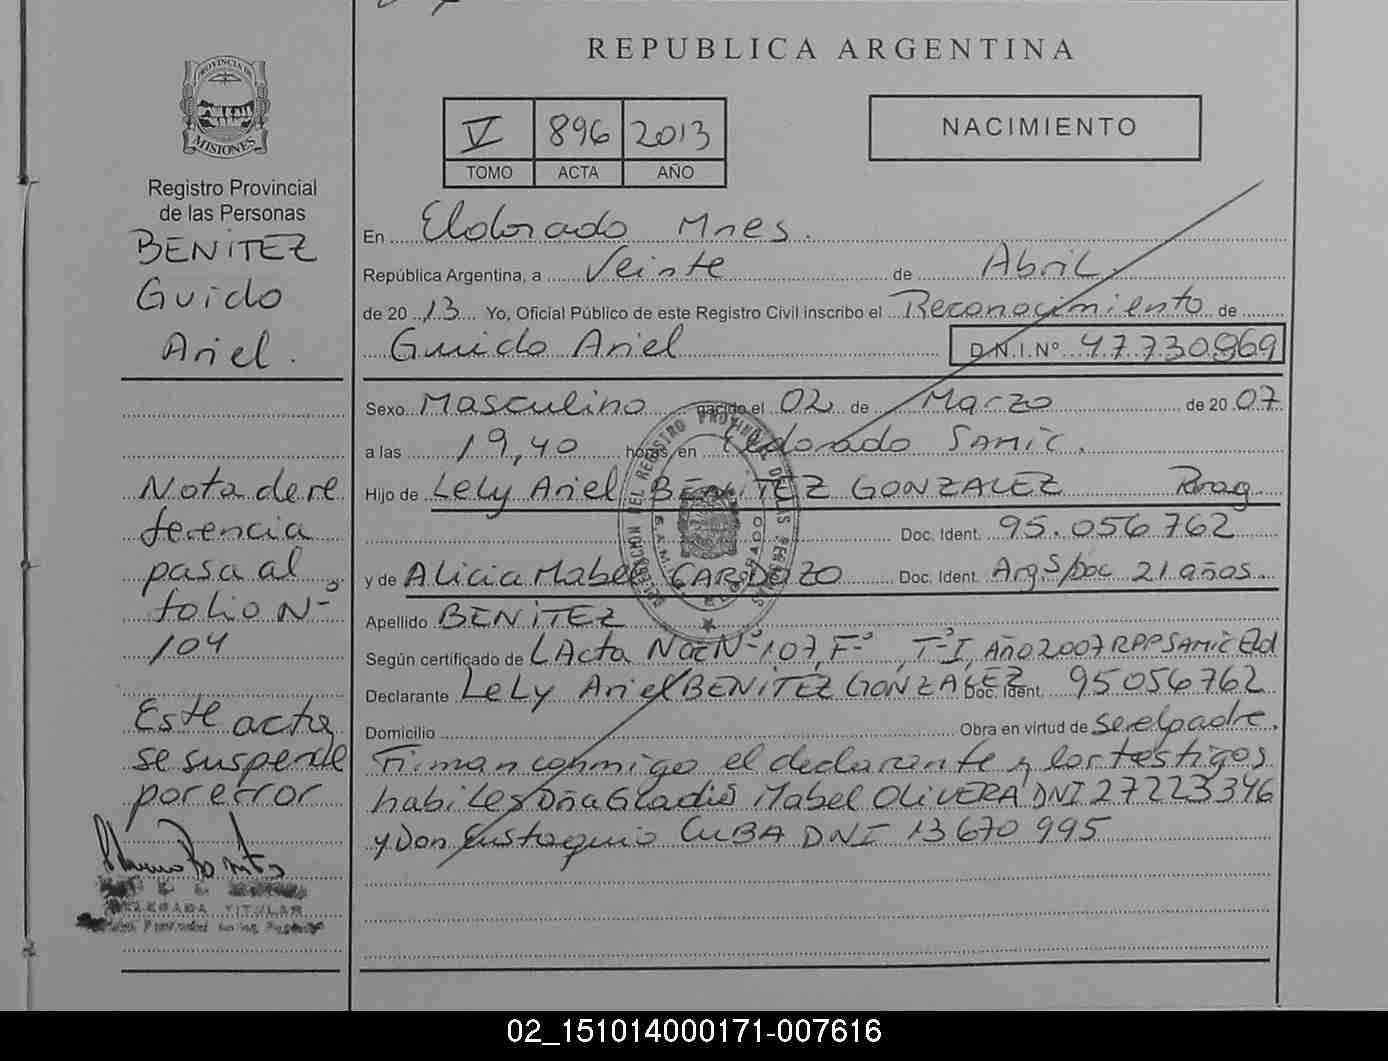 REPUBLICA ARGENTINA
PROVINCIA DE
MISIONES
Registro Provincial
de las Personas
BENITEZ
Guido
Ariel.
Nota de re
ferencia
pasa al
folio Nº
104
Este acta
se suspende
por error
DELEGADA TITULAR
V 896 2013
TOMO ACTA AÑO
NACIMIENTO
En Eldorado Mnes.
República Argentina, a Veinte de Abril
de 20 13 Yo, Oficial Público de este Registro Civil inscribo el Reconocimiento de
Guido Ariel D.N.I.Nº 47.730.969
Sexo Masculino nacido el 02 de Marzo de 20 07
a las 19,40 horas en Eldorado SAMIC.
Hijo de Lely Ariel BENITEZ GONZALEZ Parag.
Doc. Ident. 95.056.762
y de Alicia Mabel CARDOZO Doc. Ident. Arg S/Doc 21 años
Apellido BENITEZ
Según certificado de L Acta Nac Nº 107, Fº , Tº I, Año 2007 RPP SAMIC Eld
Declarante Lely Ariel BENITEZ GONZALEZ Doc. Ident. 95056762
Domicilio Obra en virtud de ser el padre.
Firman conmigo el declarante y los testigos
habiles Doña Gladis Mabel OLIVERA DNI 27223346
y Don Eustaquio CUBA DNI 13670995
DELEGACION DEL REGISTRO PROVINCIAL DE LAS PERSONAS
ELDORADO
02_151014000171-007616